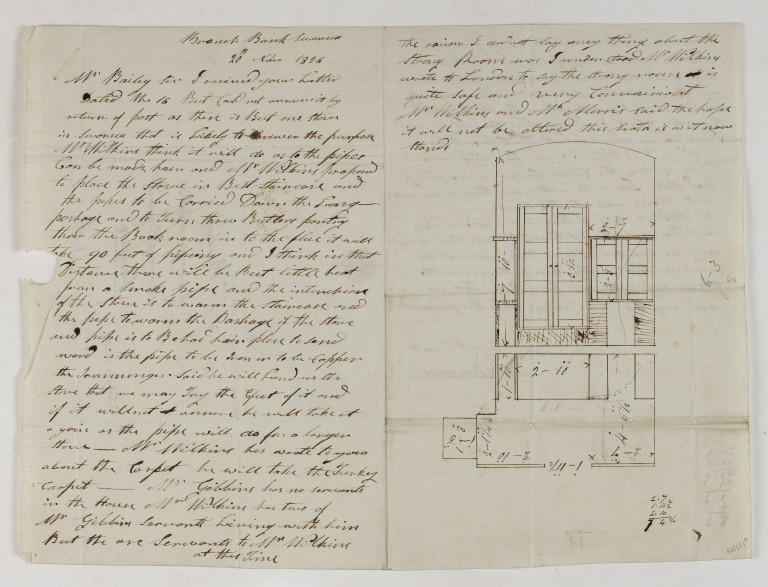 Branch Bank Swansea
20th Novr 1826
Mr Bailey Sir I received your Letter
Dated the 16 But Cold not answer it by
return of post as there is But one stove
in Swansea that is Likely to answer the purpose
Mr Wilkins think it will do as to the pipes
Can be made hear and Mr Wilkins propond
to place the stove in Best Staircase and
the pipes to be Carried Down the Long
pashage and to Turn threw Butlers pantry
threw the Book room in to the flue it will
take 90 feet of pipeing and I think in that
Distance there will be But little heat
from a smoke pipe and the
of the stove is to warm the staircase and
the pipe to warm the Pashage if the stove
and pipe is to Be had hair please to send
word is the pipe to be Iron or to be Copper
the Ironmonger said he will Lend us the
stove that we may Try the Efect of it and
if it will not answer he will take it
a gain as the pipe will do for a Larger
stove — Mr Wilkins has wrote to you
about the Carpet he will take the Turkey
Carpet — Mr Gibbins has no servants
in the House Mr Wilkins has two of
Mr Gibbins Servants Living with him
But the are Servants to Mr Wilkins
at this Time
the raison I did not say any thing about the
Strong Room was I understood Mr Wilkins
wrote to London to say the strong room is
quite Safe and very Convainient
Mr Wilkins and Mr Morris said the hope
it will not be altered this
stands
2-10
1-11½
2-10
6-3
2.7
1.11½
2.10
7 4½